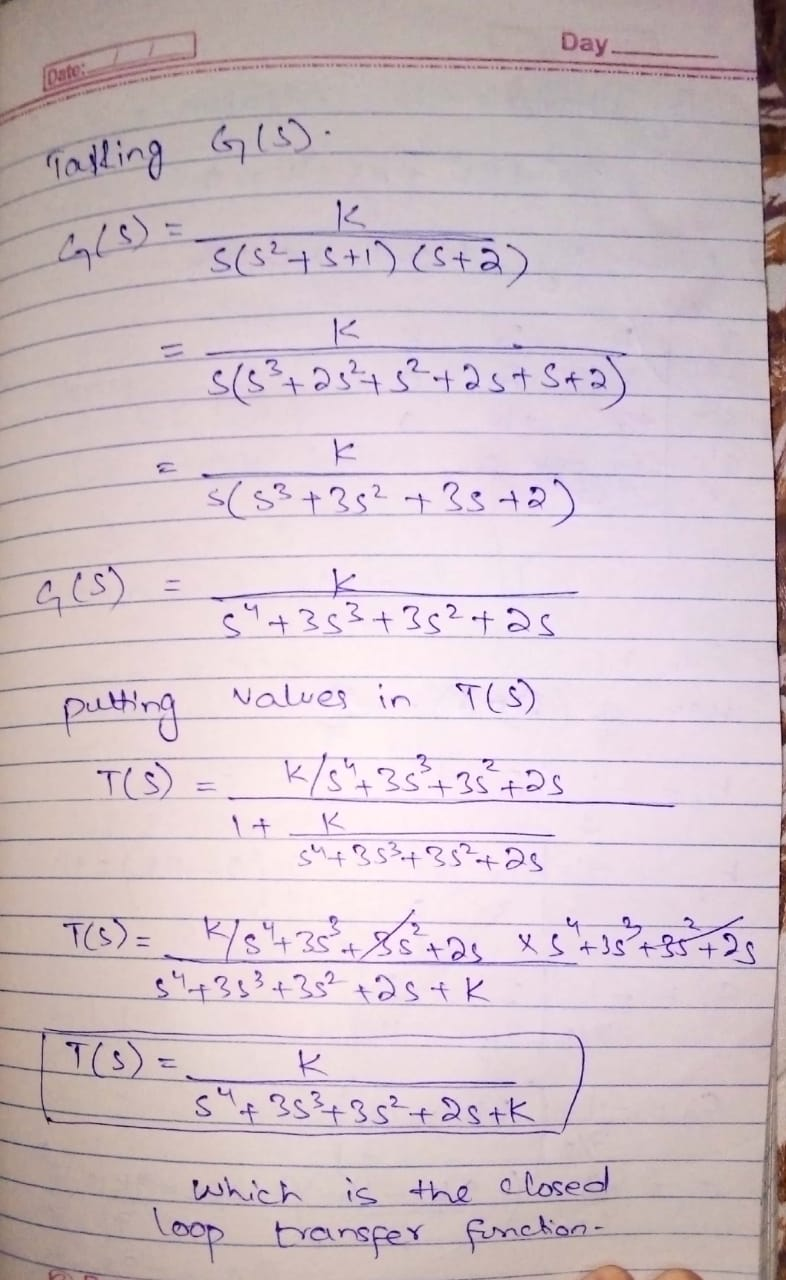 Day
Date: / /
Taking G(s).
G(s) = K / s(s²+s+1)(s+2)
= K / s(s³+2s²+s²+2s+s+2)
= K / s(s³+3s²+3s+2)
G(s) = K / s⁴+3s³+3s²+2s
putting values in T(s)
T(s) = K/s⁴+3s³+3s²+2s
1+ K / s⁴+3s³+3s²+2s
T(s) = K/s⁴+3s³+3s²+2s × s⁴+3s³+3s²+2s
s⁴+3s³+3s²+2s+K
T(s) = K / s⁴+3s³+3s²+2s+K
which is the closed
loop transfer function.